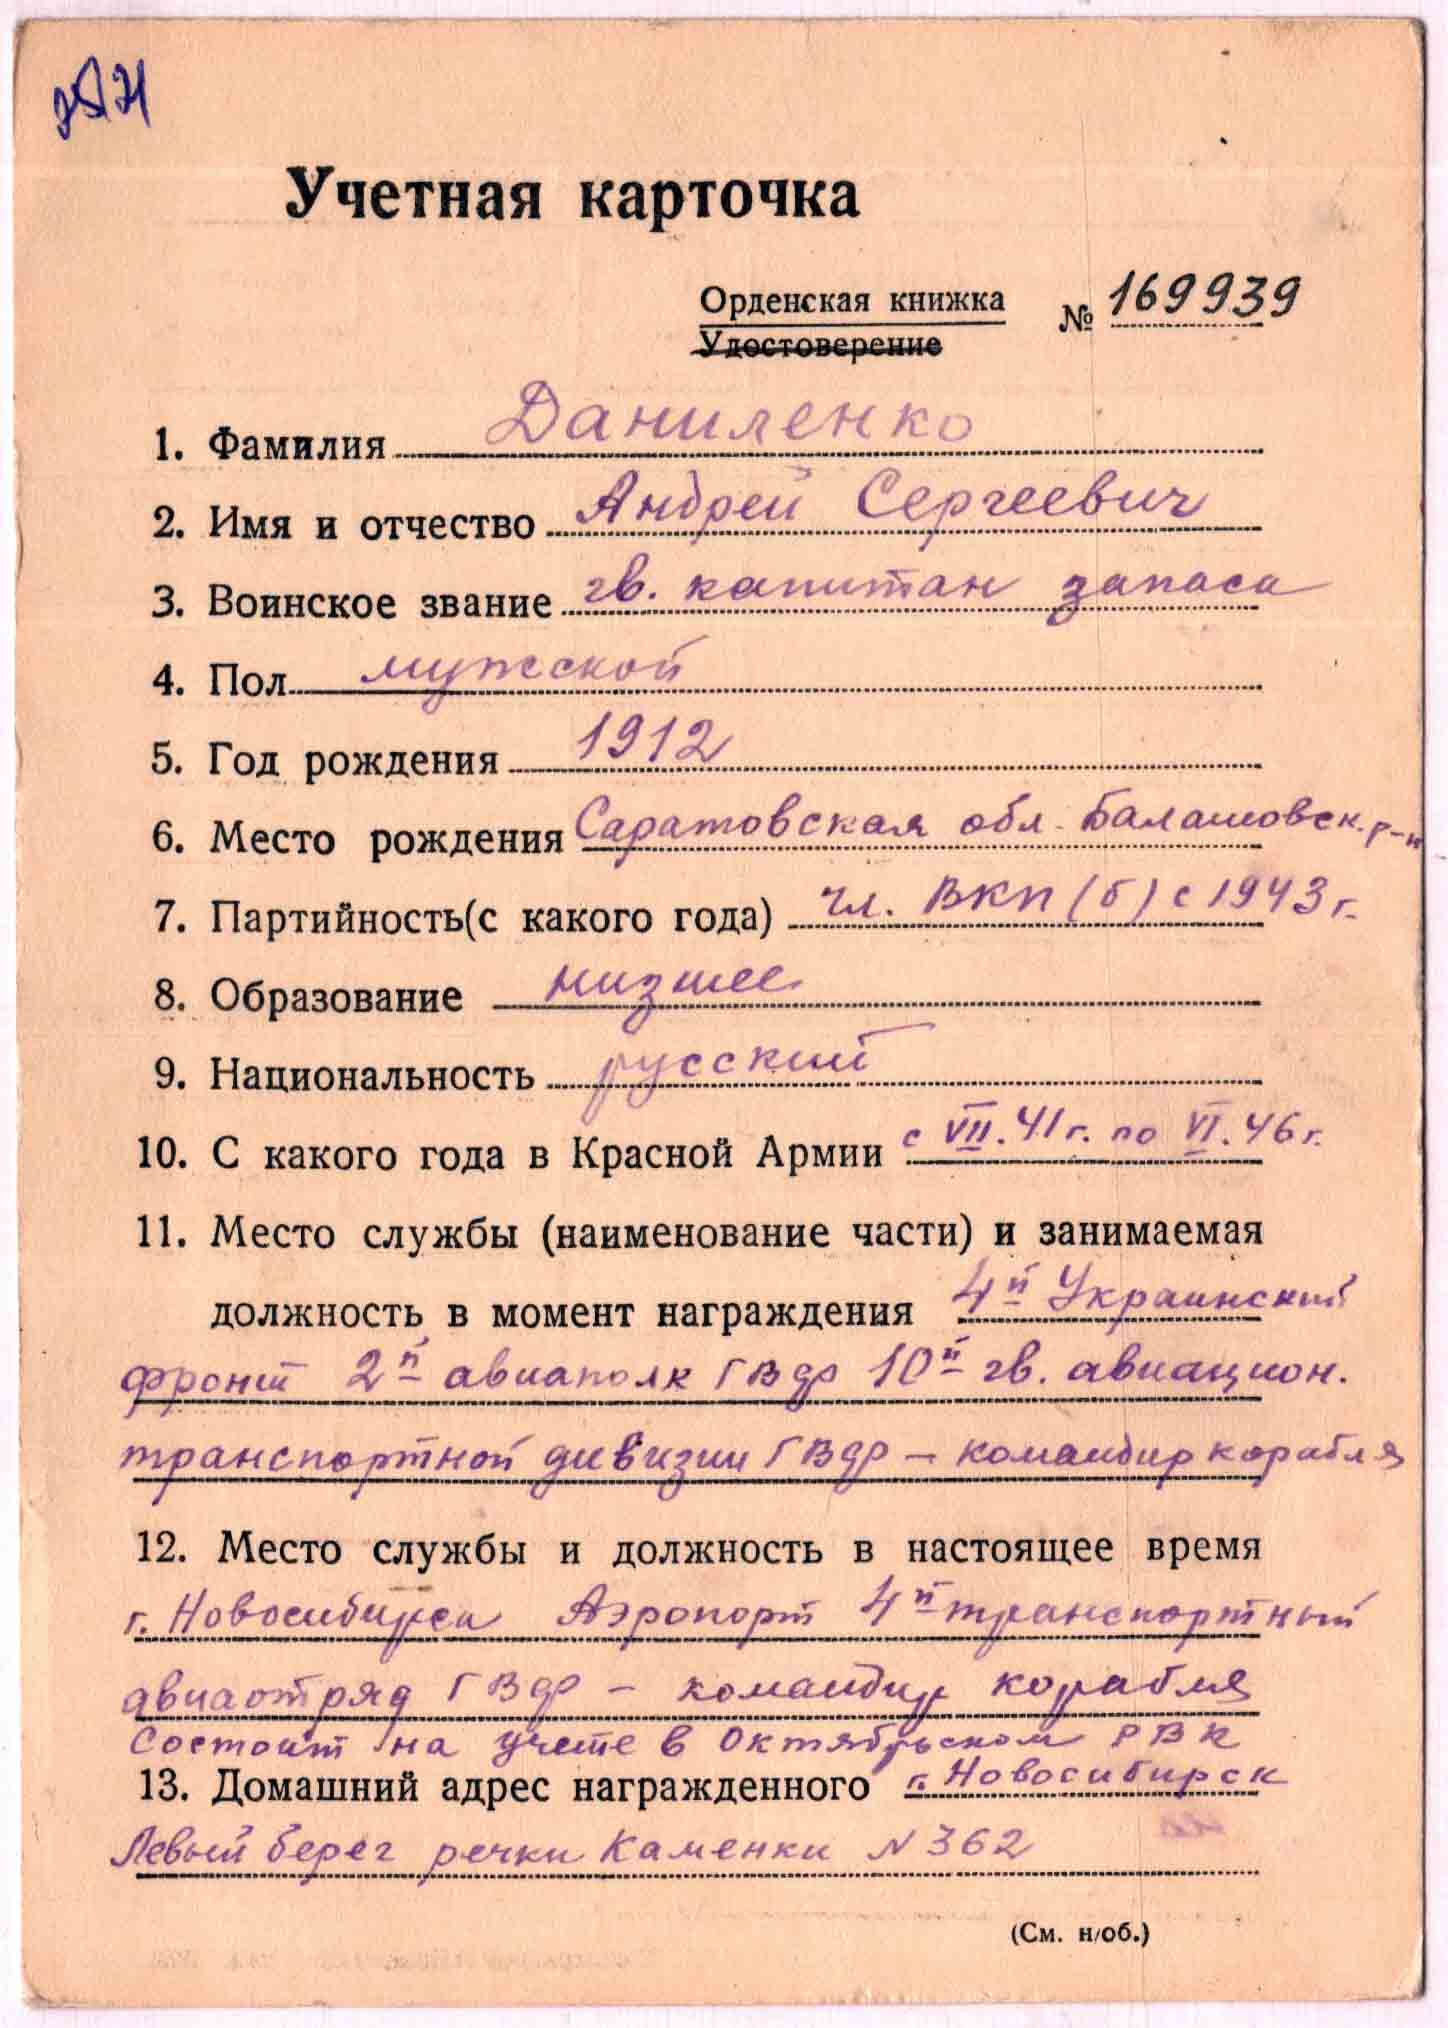 Учетная карточка
Орденская книжка № 169939
Удостоверение
1. Фамилия Даниленко
2. Имя и отчество Андрей Сергеевич
3. Воинское звание гв. капитан запаса
4. Пол мужской
5. Год рождения 1912
6. Место рождения Саратовская обл. Балашовск. р-н
7. Партийность (с какого года) чл. ВКП(б) с 1943 г.
8. Образование низшее
9. Национальность русский
10. С какого года в Красной Армии с VII.41 г. по VI.46 г.
11. Место службы (наименование части) и занимаемая
должность в момент награждения 4й Украинский
фронт 2й авиаполк ГВФ 10й гв. авиацион.
транспортной дивизии ГВФ – командир корабля
12. Место службы и должность в настоящее время
г. Новосибирск Аэропорт 4й транспортный
авиаотряд ГВФ – командир корабля
Состоит на учете в Октябрьском РВК
13. Домашний адрес награжденного г. Новосибирск
Левый берег речки Каменки N 362
(См. н/об.)